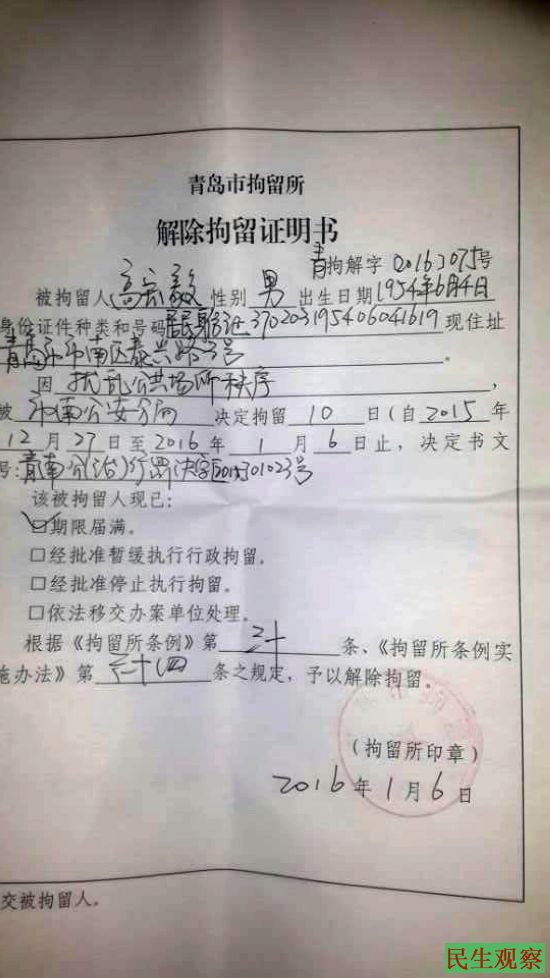 青岛市拘留所
解除拘留证明书
青拘解字 20163075号
被拘留人 高宏毅 性别 男 出生日期 1954年6月4日
身份证件种类和号码 居民身份证 370203195406041619 现住址
青岛市市南区 号。
因 扰乱公共场所秩序,
被 市南公安分局 决定拘留 10 日(自 2015 年
12 月 27 日至 2016 年 1 月 6 日止,决定书文
号:青南公(治)行罚决字 号
该被拘留人现已:
☑期限届满。
□经批准暂缓执行行政拘留。
□经批准停止执行拘留。
□依法移交办案单位处理。
根据《拘留所条例》第 三十 条、《拘留所条例实
施办法》第 条之规定,予以解除拘留。
(拘留所印章)
2016 年 1 月 6 日
交被拘留人。
民生观察